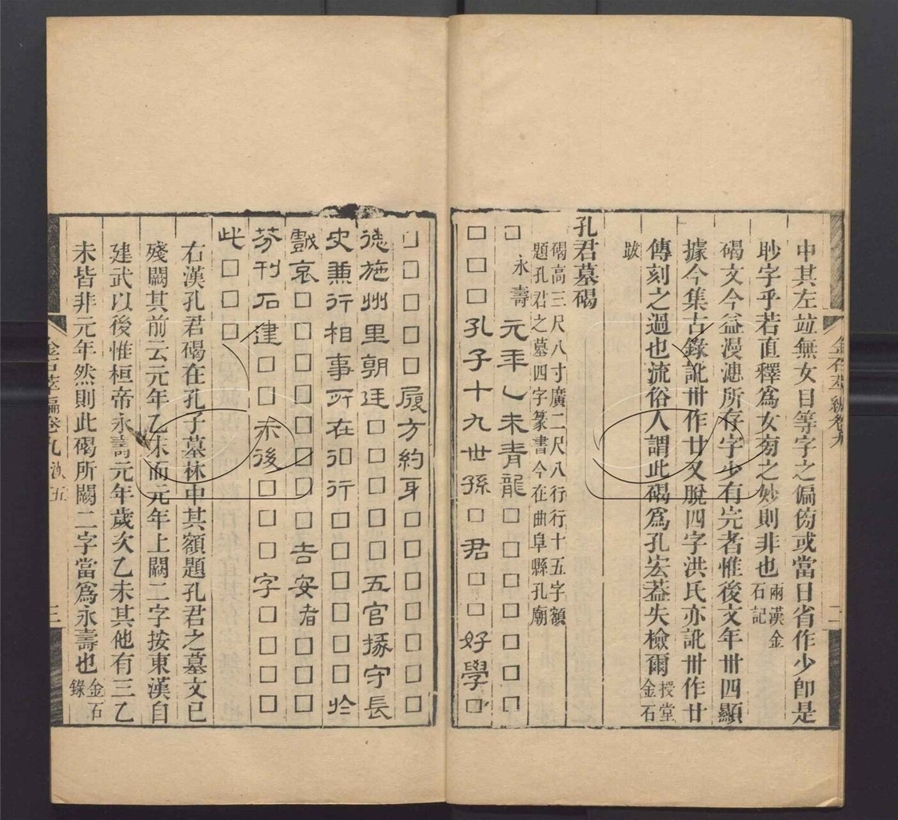 中其左竝無女目等字之偏㑂或當日省作少卽是
眇字乎若直釋爲女㑂之妙則非也兩漢金石記
碣文今益漫漶所存字少有完者惟後文年卌四顯
據今集古錄訛卌作廿又脫四字洪氏亦訛卌作廿
傳刻之過也流俗人謂此碣爲孔宏蓋失檢爾授堂金石
跋
孔君墓碣
碣高三尺八寸廣二尺八行行十五字額
題孔君之墓四字篆書今在曲阜縣孔廟
□永壽元年乙未青龍□□□□□□
□□□孔子十九世孫□君□□好學□
金石萃編卷九
二
□□□□□履方約身□□□□□□□
德施州里朝廷□□□□五官掾守長
史兼行相事所在卲行□□□□□□於
戲哀□□□□□□□吿安者□□□
芬刊石建□□未後□□□字□□□□
此□□□
右漢孔君碣在孔子墓林中其額題孔君之墓文已
殘闕其前云元年乙未而元年上闕二字按東漢自
建武以後惟桓帝永壽元年歲次乙未其他有三乙
未皆非元年然則此碣所闕二字當爲永壽也金石錄
金石萃編卷九 漢五
三